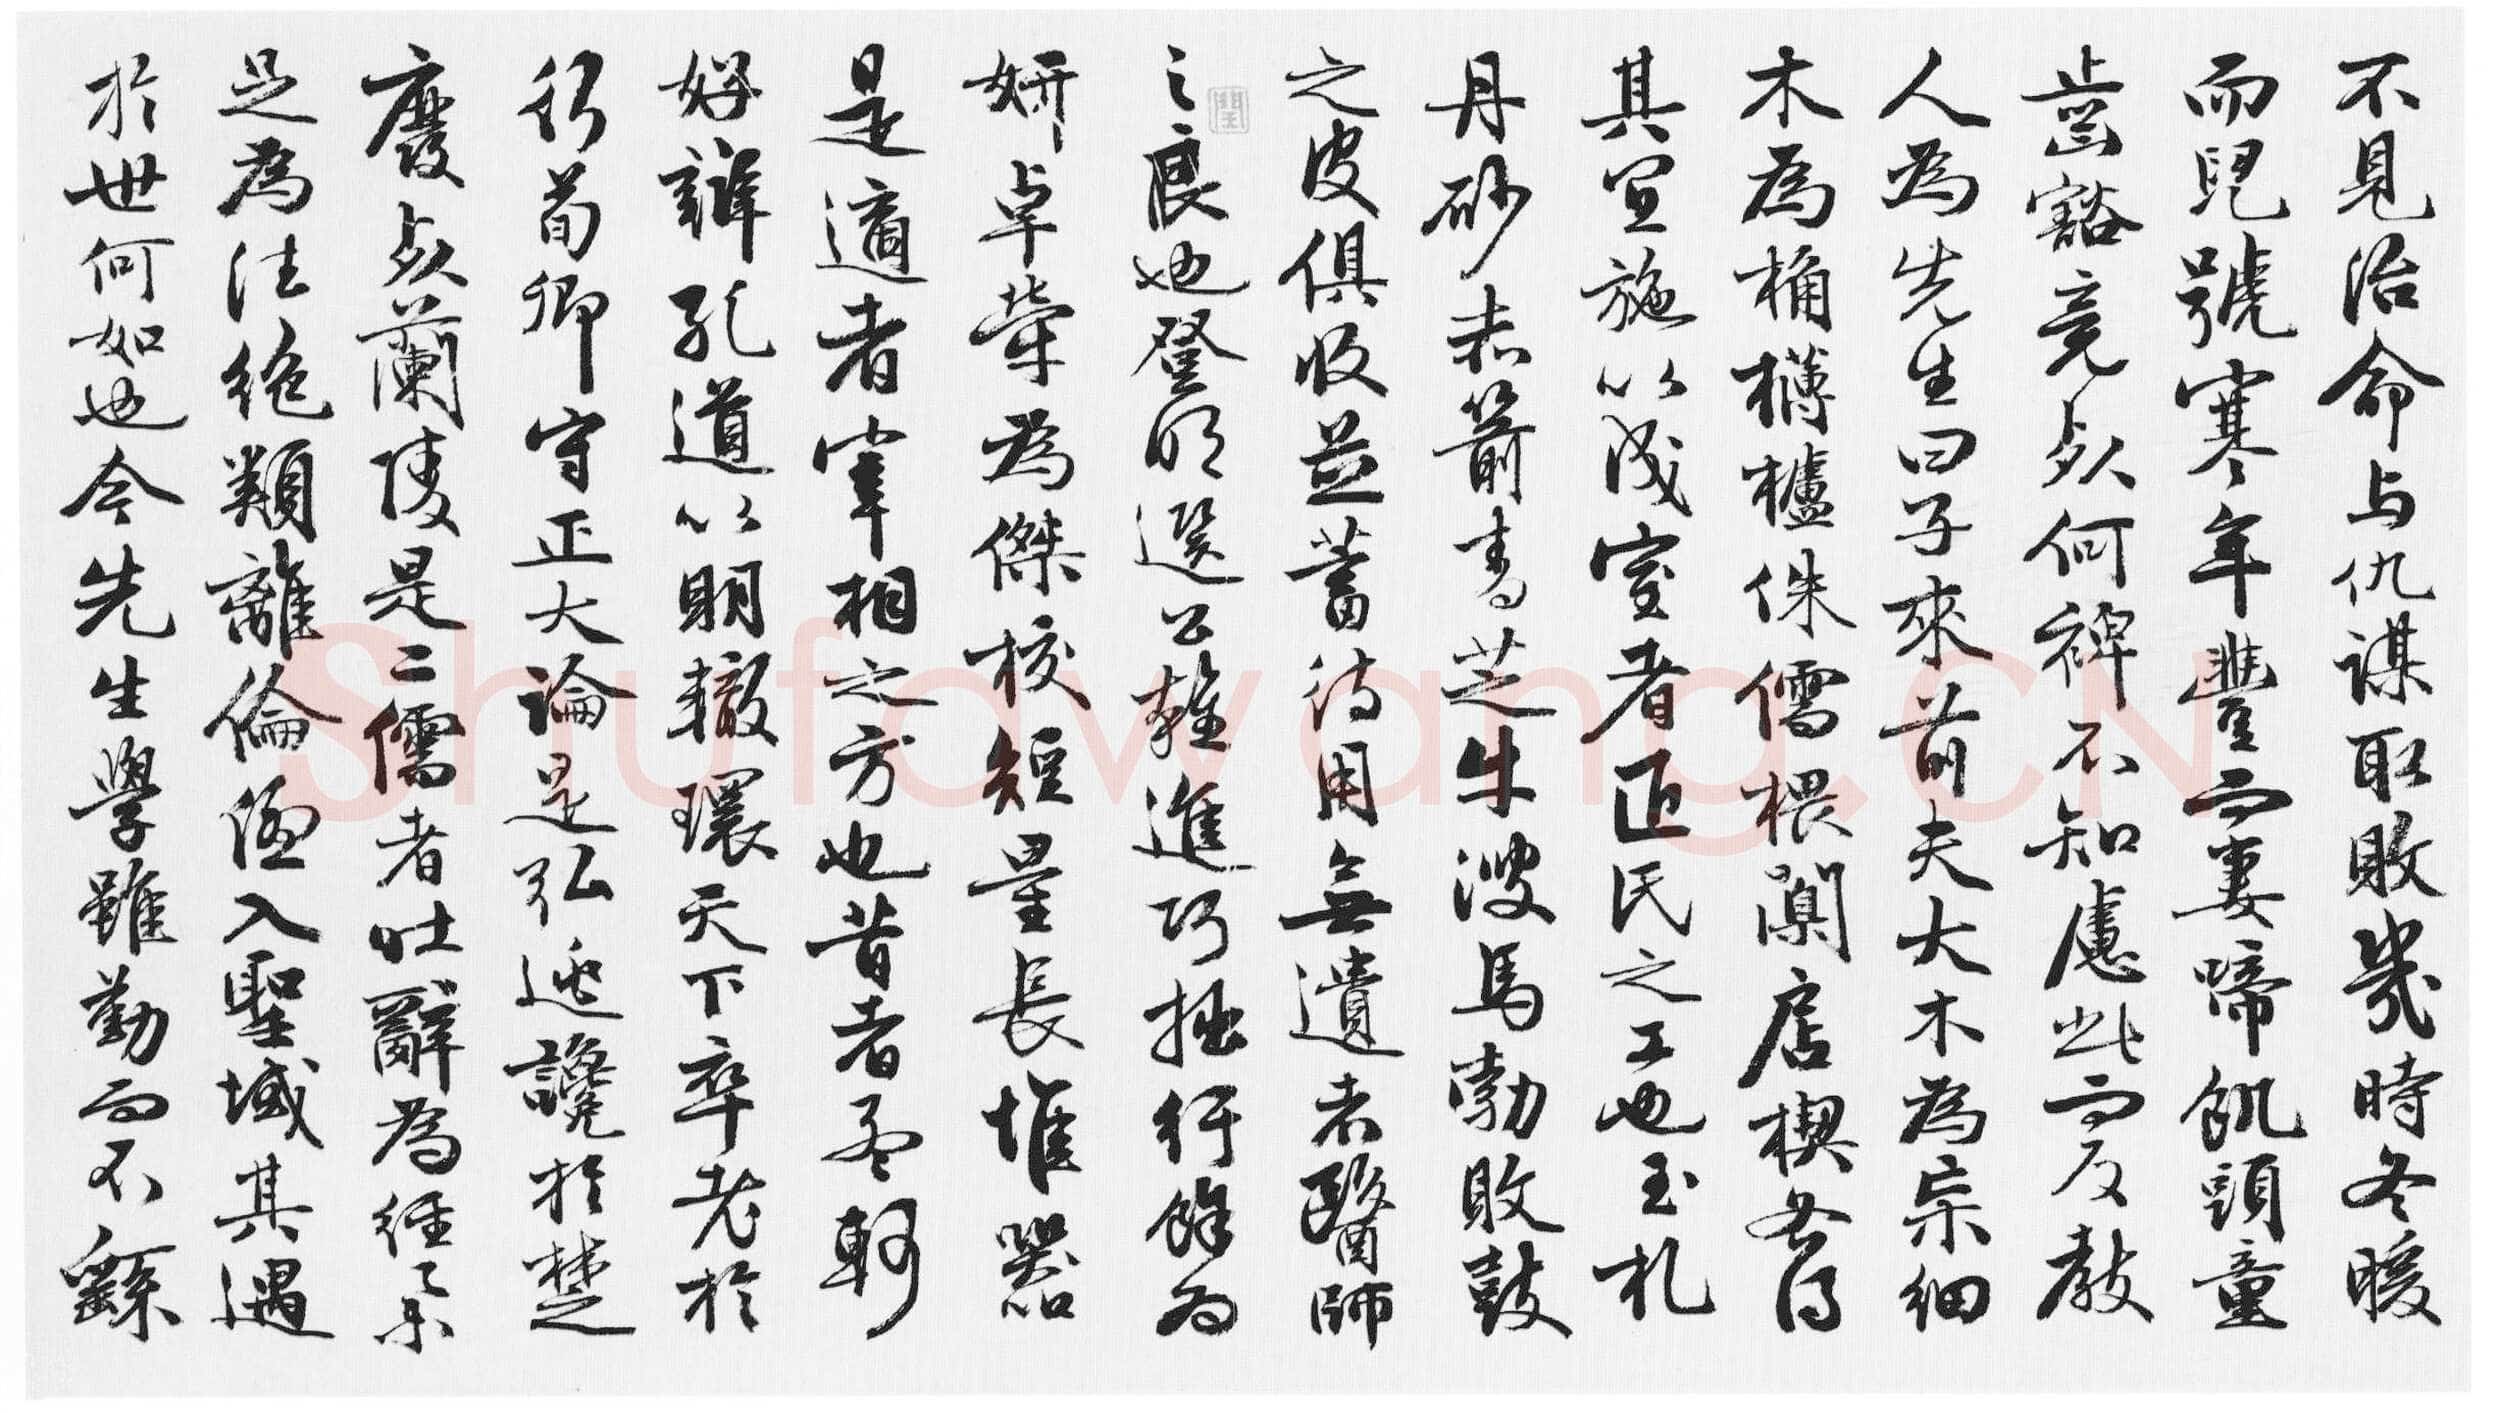 不見治命与仇謀取敗幾時冬暖
而兒號寒年豐而妻啼飢頭童
齒豁竟死何裨不知慮此而反教
人為先生曰子來前夫大木為杗細
木為桷欂櫨侏儒椳闑扂楔各得
其宜施以成室者匠民之工也玉札
丹砂赤箭青芝牛溲馬勃敗鼓
之皮俱收並蓄待用無遺者醫師
之良也登明選公雜進巧拙紆餘為
妍卓犖為傑校短量長惟器
是適者宰相之方也昔者孟軻
好辯孔道以明轍環天下卒老於
行荀卿守正大論是弘逃讒於楚
廢死蘭陵是二儒者吐辭為經舉
足為法絕類離倫優入聖域其遇
於世何如也今先生學雖勤而不繇
Shufawang.CN